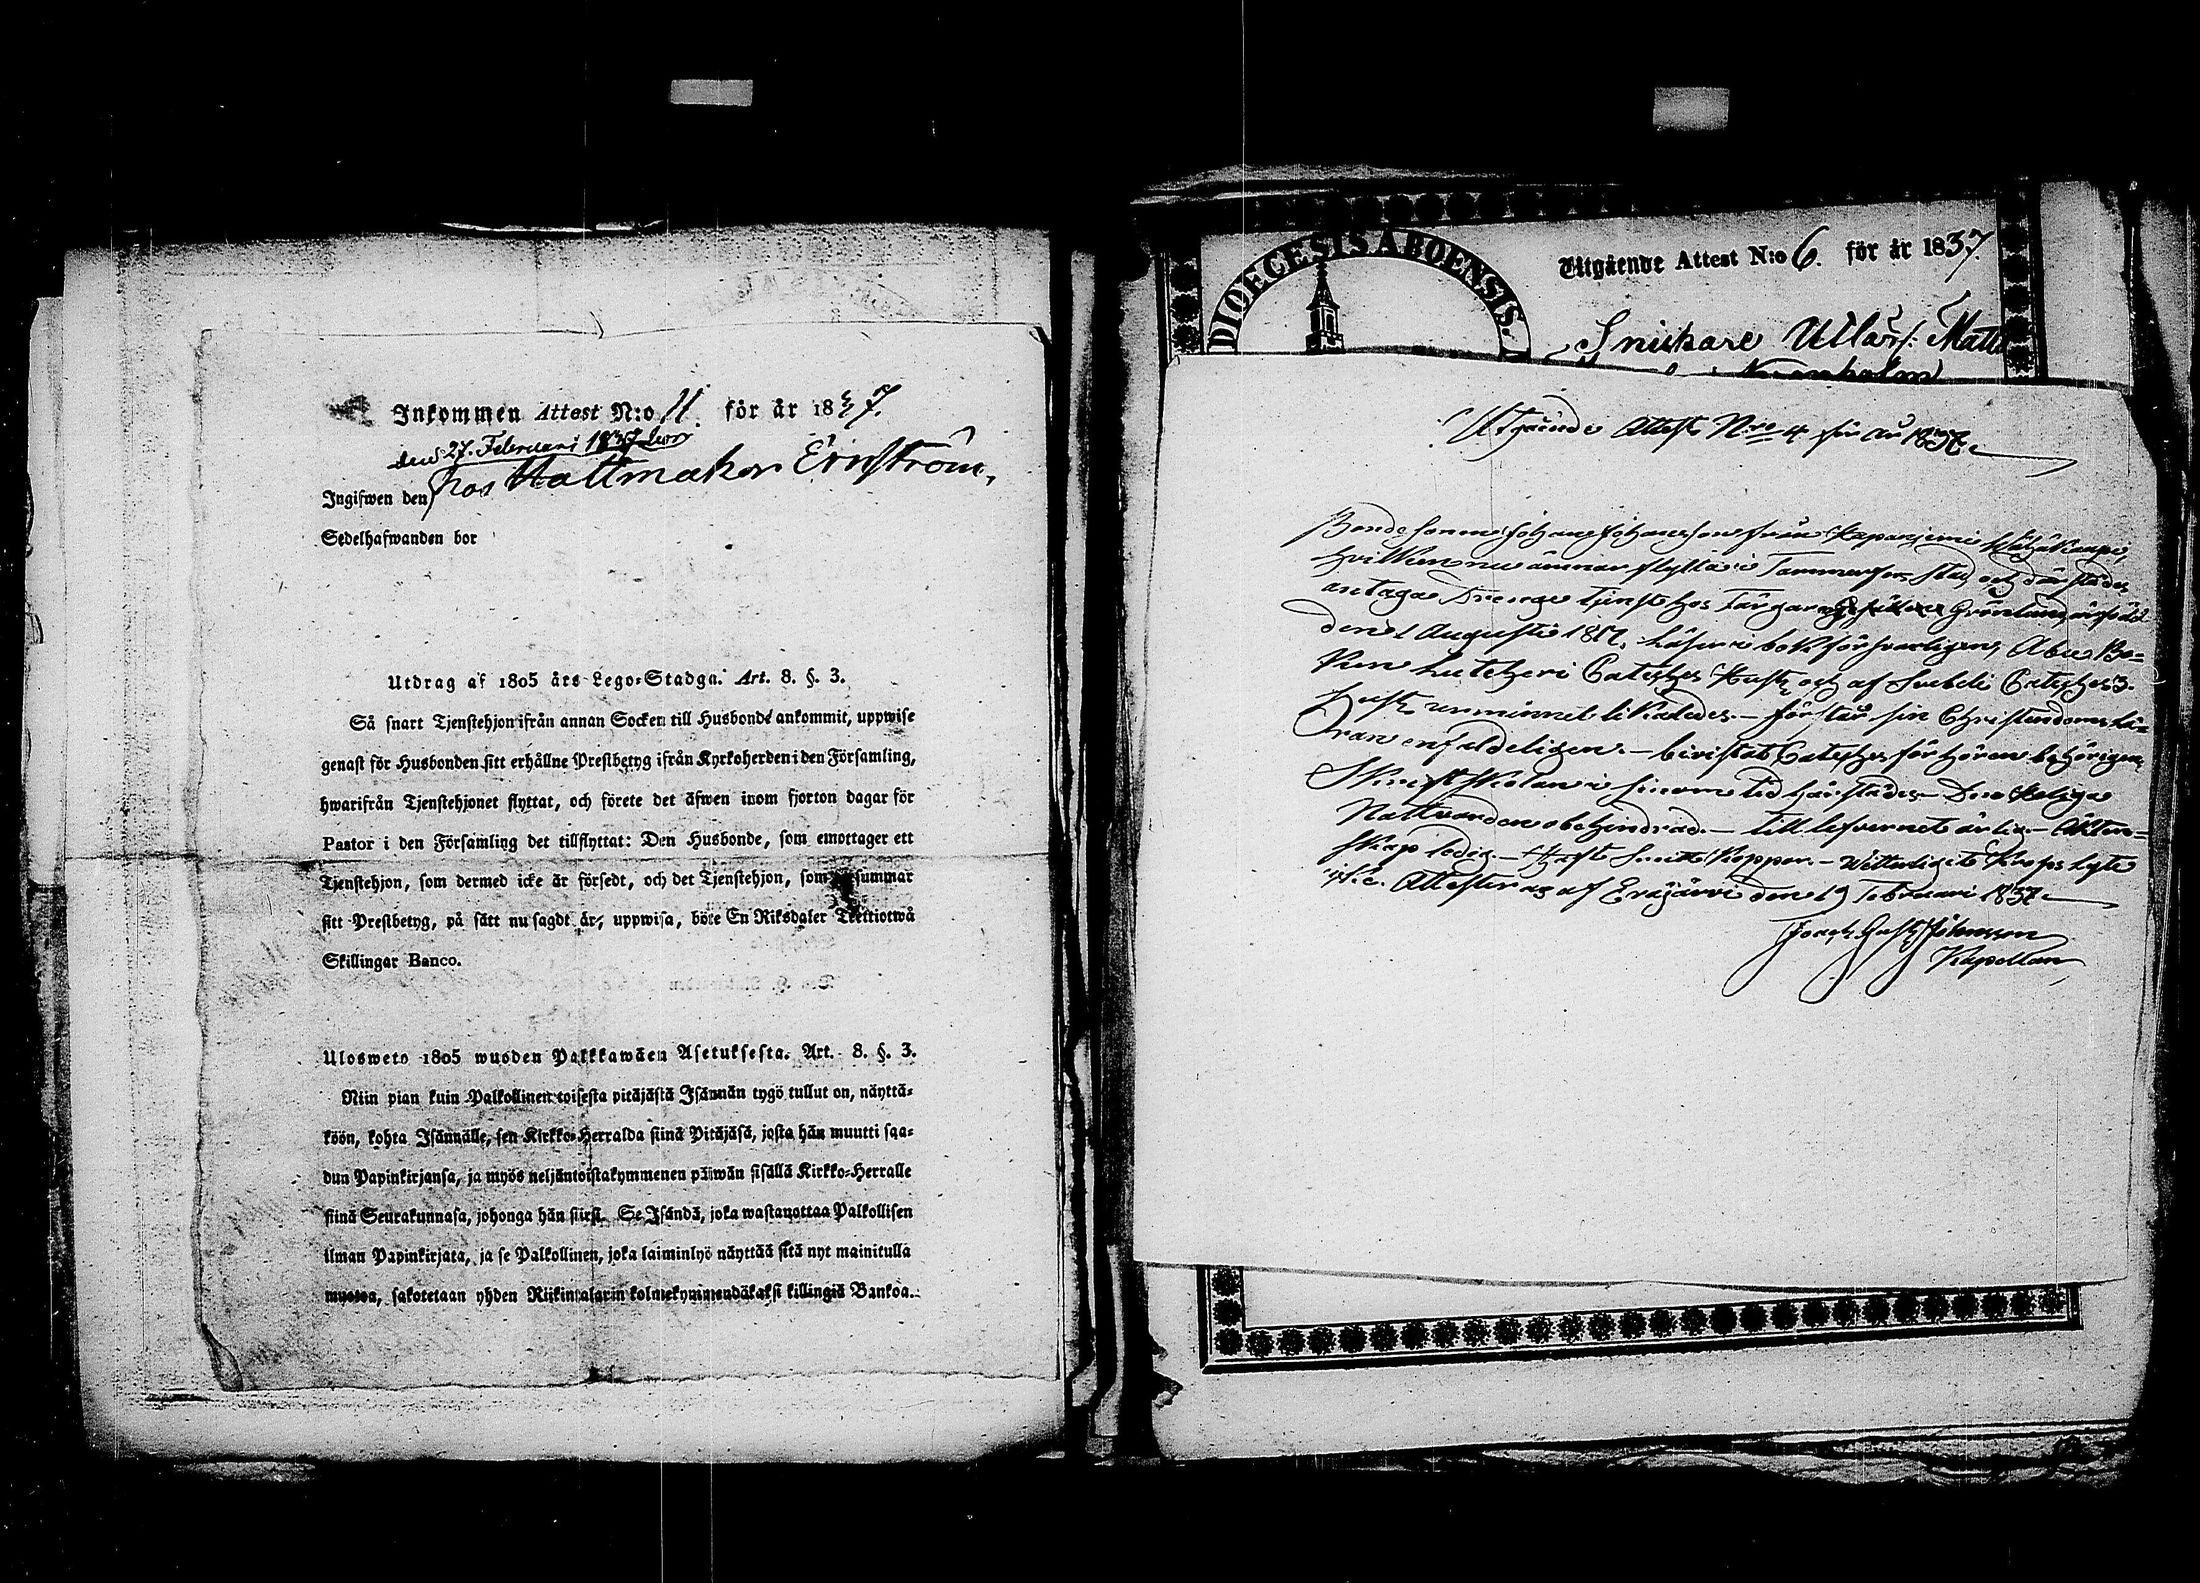 Inkommen Attest N:o 11. för år 1837.
den 27. Februari 1837 bor
Ingifwen den hos Hattmakar Ernström,
Sedelhafwanden bor
Utdrag af 1805 års Lego-Stadga. Art. 8. §. 3.
Så snart Tjenstehjon ifrån annan Socken till Husbonde ankommit, uppwise
genast för Husbonden sitt erhållne Prestbetyg ifrån Kyrkoherden i den Församling,
hwarifrån Tjenstehjonet flyttat, och förete det äfwen inom fjorton dagar för
Pastor i den Församling det tillflyttat: Den Husbonde, som emottager ett
Tjenstehjon, som dermed icke är försedt, och det Tjenstehjon, som försummar
sitt Prestbetyg, på sätt nu sagdt är, uppwisa, böte En Riksdaler Trettiotwå
Skillingar Banco.
Ulosweto 1805 wuoden Palkkawäen Asetuksesta. Art. 8. §. 3.
Niin pian kuin Palkollinen toisesta pitäjästä Isännän tygö tullut on, näyttä-
köön, kohta Isännälle, sen Kirkko-Herralda siinä Pitäjäsä, josta hän muutti saa-
dun Papinkirjansa, ja myös neljäntoistakymmenen päiwän sisällä Kirkko-Herralle
siinä Seurakunnasa, johonga hän siirsi. Se Isändä, joka wastanottaa Palkollisen
ilman Papinkirjata, ja se Palkollinen, joka laiminlyö näyttää sitä nyt mainitulla
muotoa, sakotetaan yhden Riikintalarin kolmekymmendäkaksi killingiä Bankoa.
DIOECESIS ABOENSIS.
Utgående Attest N:o 6. för år 1837.
Snickare Matts
Utgående Attest N:ro 4 för år 1837.
Bonde sonne Johan Johansson från
hvilken nu ämnar flytta i Tammerfors stad och därstädes
antaga Drenge tjenst hos Färgare Grönlund, är född
den 1 Augusti 1817. Läser i bok försvarligen, Abc Bo-
ken Lutheri Cateches och af Svebeli Cateches 3.
ur minnet likaledes. — förstår sin Christendoms Lä-
ran enfaldeligen. — bivistat Cateches förhören behörigen,
Skriftskolan i sinom tid härstädes. Den Heliga
Nattvarden obehindrad. — till lefvernet ärlig. — Äkten-
skap ledig. — Haft Smitt Koppor. — Wetterligit Kropslyte
Attesteras af Eräjärvi den 19 Februari 1837.
Joach. Gust. Johansson
Kapellan